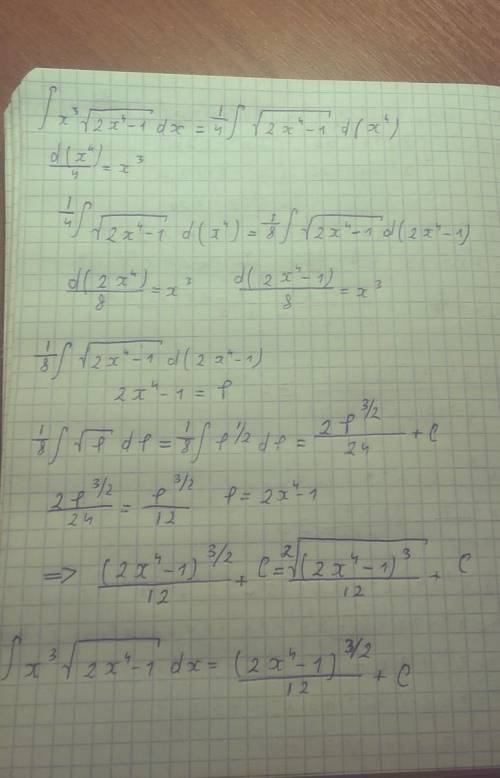 ∫ x³ √(2x⁴-1) dx = 1/4 ∫ √(2x⁴-1) d(x⁴)
d(x⁴)/4 = x³
1/4 ∫ √(2x⁴-1) d(x⁴) = 1/8 ∫ √(2x⁴-1) d(2x⁴-1)
d(2x⁴)/8 = x³ d(2x⁴-1)/8 = x³
1/8 ∫ √(2x⁴-1) d(2x⁴-1)
2x⁴-1 = P
1/8 ∫ √P dP = 1/8 ∫ P^1/2 dP = 2P^3/2/24 + C
2P^3/2/24 = P^3/2/12 P = 2x⁴-1
=> (2x⁴-1)^3/2/12 + C = ²√((2x⁴-1)³)/12 + C
∫ x³ √(2x⁴-1) dx = (2x⁴-1)^3/2/12 + C